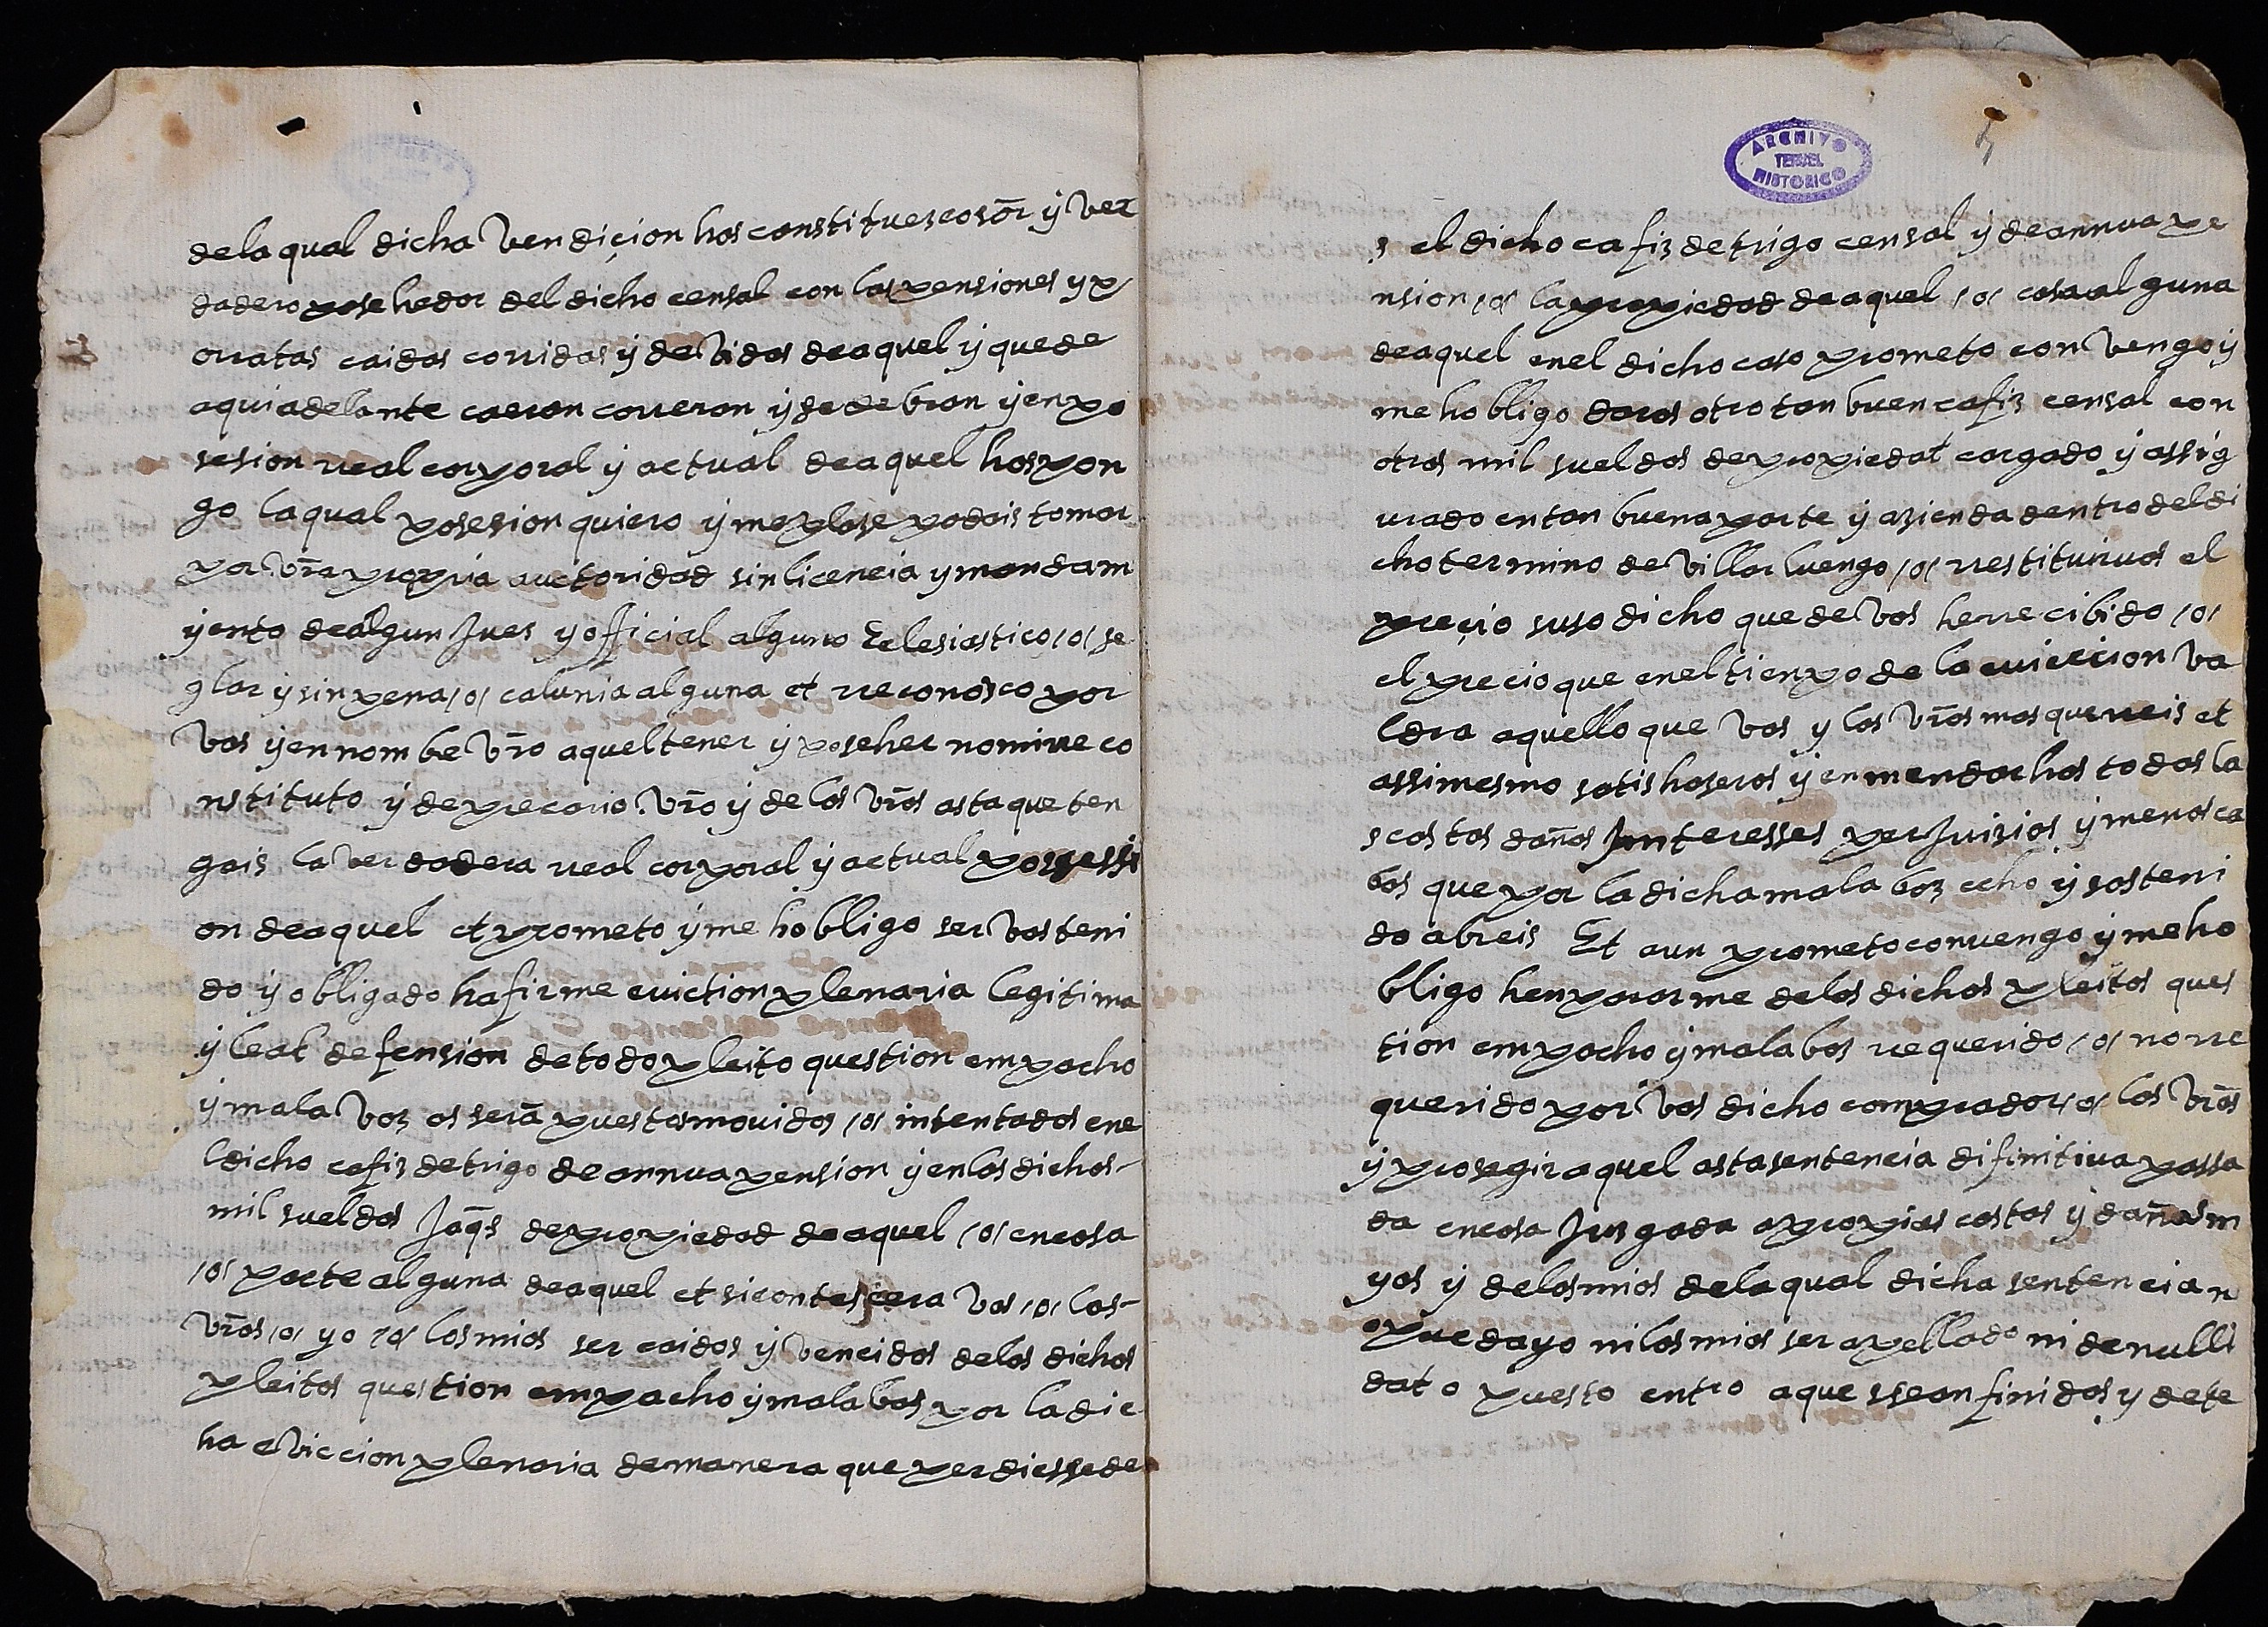 dela qual dicha vendiçion hos constituesco sōr y ver
dadero posehedor del dicho censal con las pensiones y p
orratas caidas corridas y devidas de aquel y que de
aqui adelante caeran correran y se debran y en po
sesion real corporal y actual de aquel hos pon
go la qual posesion quiero y me plase podais tomar
por vr̄a propria auctoridad sin licencia y mandam
yento de algun Jues y official alguno Eclesiastico /o/ se
glar y sin pena /o/ calunia alguna et reconosco por
vos y en nombe vr̄o aquel tener y poseher nomine co
nstituto y de precario vr̄o y de los vr̄os asta que ten
gais la verdadera real corporal y actual possessi
on de aquel et prometo y me hobligo ser vos teni
do y obligado ha firme eviction plenaria legitima
y leal defension de todo pleito question empacho
y mala voz os serā puestos movidos /o/ intentados ene
l dicho cafiz de trigo de annua pension y en los dichos
mil sueldos Jaq̄s de propiedad de aquel /o/ en cosa
/o/ parte alguna de aquel et si contescera vos /o/ los
vr̄os /o/ yo /o/ los mios ser caidos y vencidos de los dichos
pleitos question empacho y mala bos por la dic
ha eviccion plenaria de manera que perdiessede
ARCHIVO
TERUEL
HISTORICO
5
s el dicho cafiz de trigo censal y de annua pe
nsion /o/ la propiedad de aquel /o/ cosa alguna
de aquel en el dicho caso prometo convengo y
me hobligo daros otro tan buen cafiz censal con
otros mil sueldos de propiedat cargado y assig
urado en tan buena parte y azienda dentro del di
cho termino de villarluengo /o/ restituiros el
preçio suso dicho que de vos he recibido /o/
el precio que en el tienpo de la eviccion va
ldra aquello que vos y los vr̄os mas querreis et
assimesmo satishazeros y enmendarhos todas la
s costas dan̄os Jnteresses perJuizios y menosca
bos que por la dicha mala boz echo y sosteni
do abreis Et aun prometo convengo y me ho
bligo henpararme de los dichos pleitos ques
tion empacho y mala bos requerido /o/ no re
querido por vos dicho comprador /o/ los vr̄os
y prosegir aquel asta sentencia difinitiva passa
da en cosa Jusgada a propias costas y dan̄os m
yos y de los mios de la qual dicha sentencia n
o pueda yo ni los mios ser apellado ni de nulli
dat o puesto entro a que ssean finidos y dete